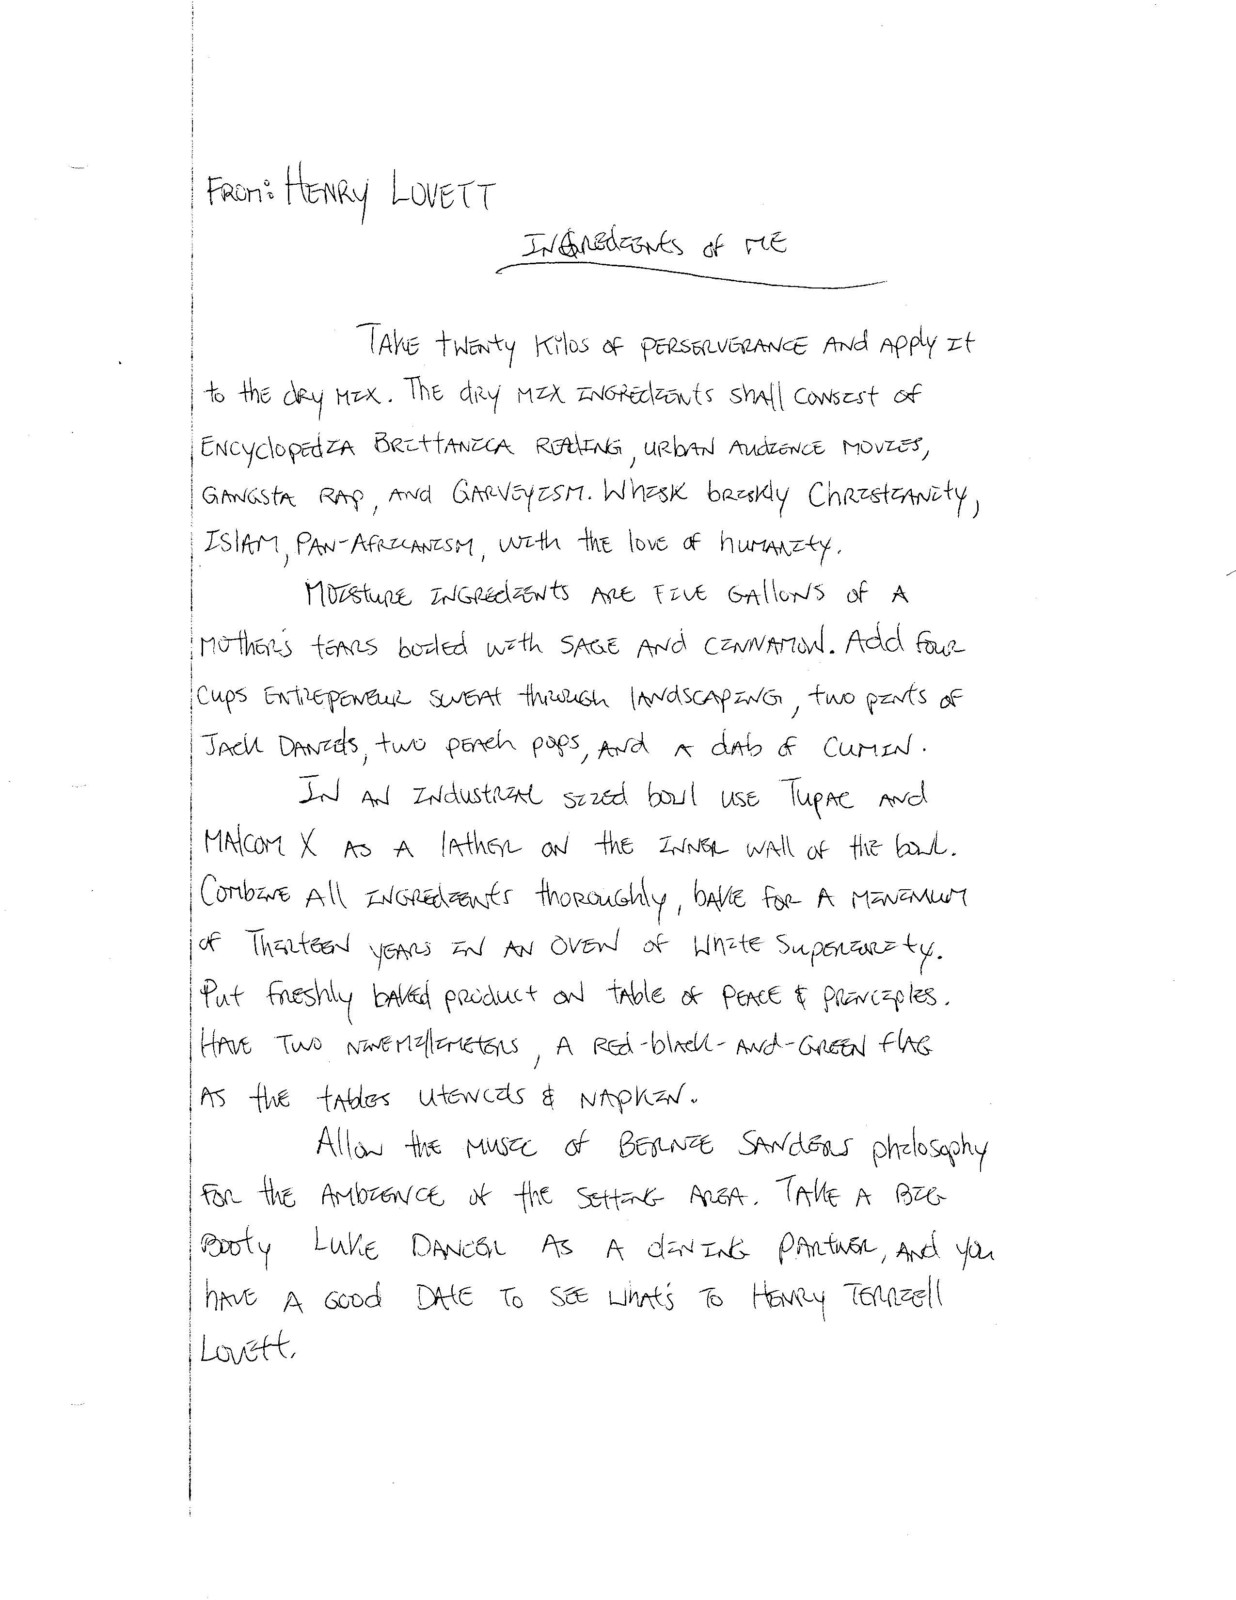 From: Henry Lovett
Ingredients of Me
Take twenty kilos of perserverance and apply it
to the dry mix. The dry mix ingredients shall consist of
Encyclopedia Brittanica reading, urban audience movies,
gangsta rap, and Garveyism. Whisk briskly Christianity,
Islam, Pan-Africanism, with the love of humanity.
Moisture ingredients are five gallons of a
mother's tears boiled with sage and cinnamon. Add four
cups entrepeneur sweat through landscaping, two pints of
Jack Daniels, two peach pops, and a dab of cumin.
In an industrial sized bowl use Tupac and
Malcom X as a lather on the inner wall of the bowl.
Combine all ingredients thoroughly, bake for a minimum
of thirteen years in an oven of white superiority.
Put freshly baked product on table of peace & principles.
Have two ninemillimeters, a red-black-and-green flag
as the tables utencils & napkin.
Allow the music of Bernie Sanders philosophy
for the ambience of the setting area. Take a big
booty Luke dancer as a dining partner, and you
have a good date to see what's to Henry Terrell
Lovett.